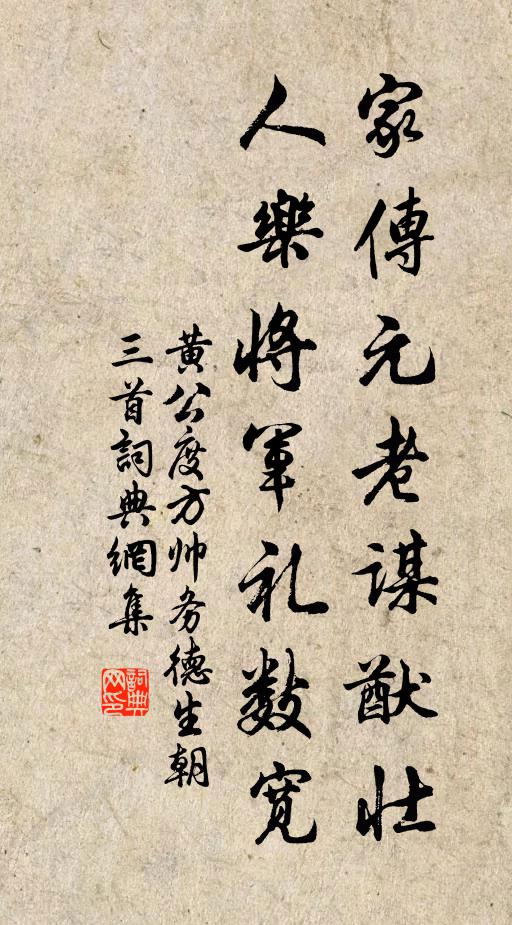 家傳元老謀猷壯
人樂將軍礼數寬
黄公度方帅务德生朝
三首詞典網集
詞典网印